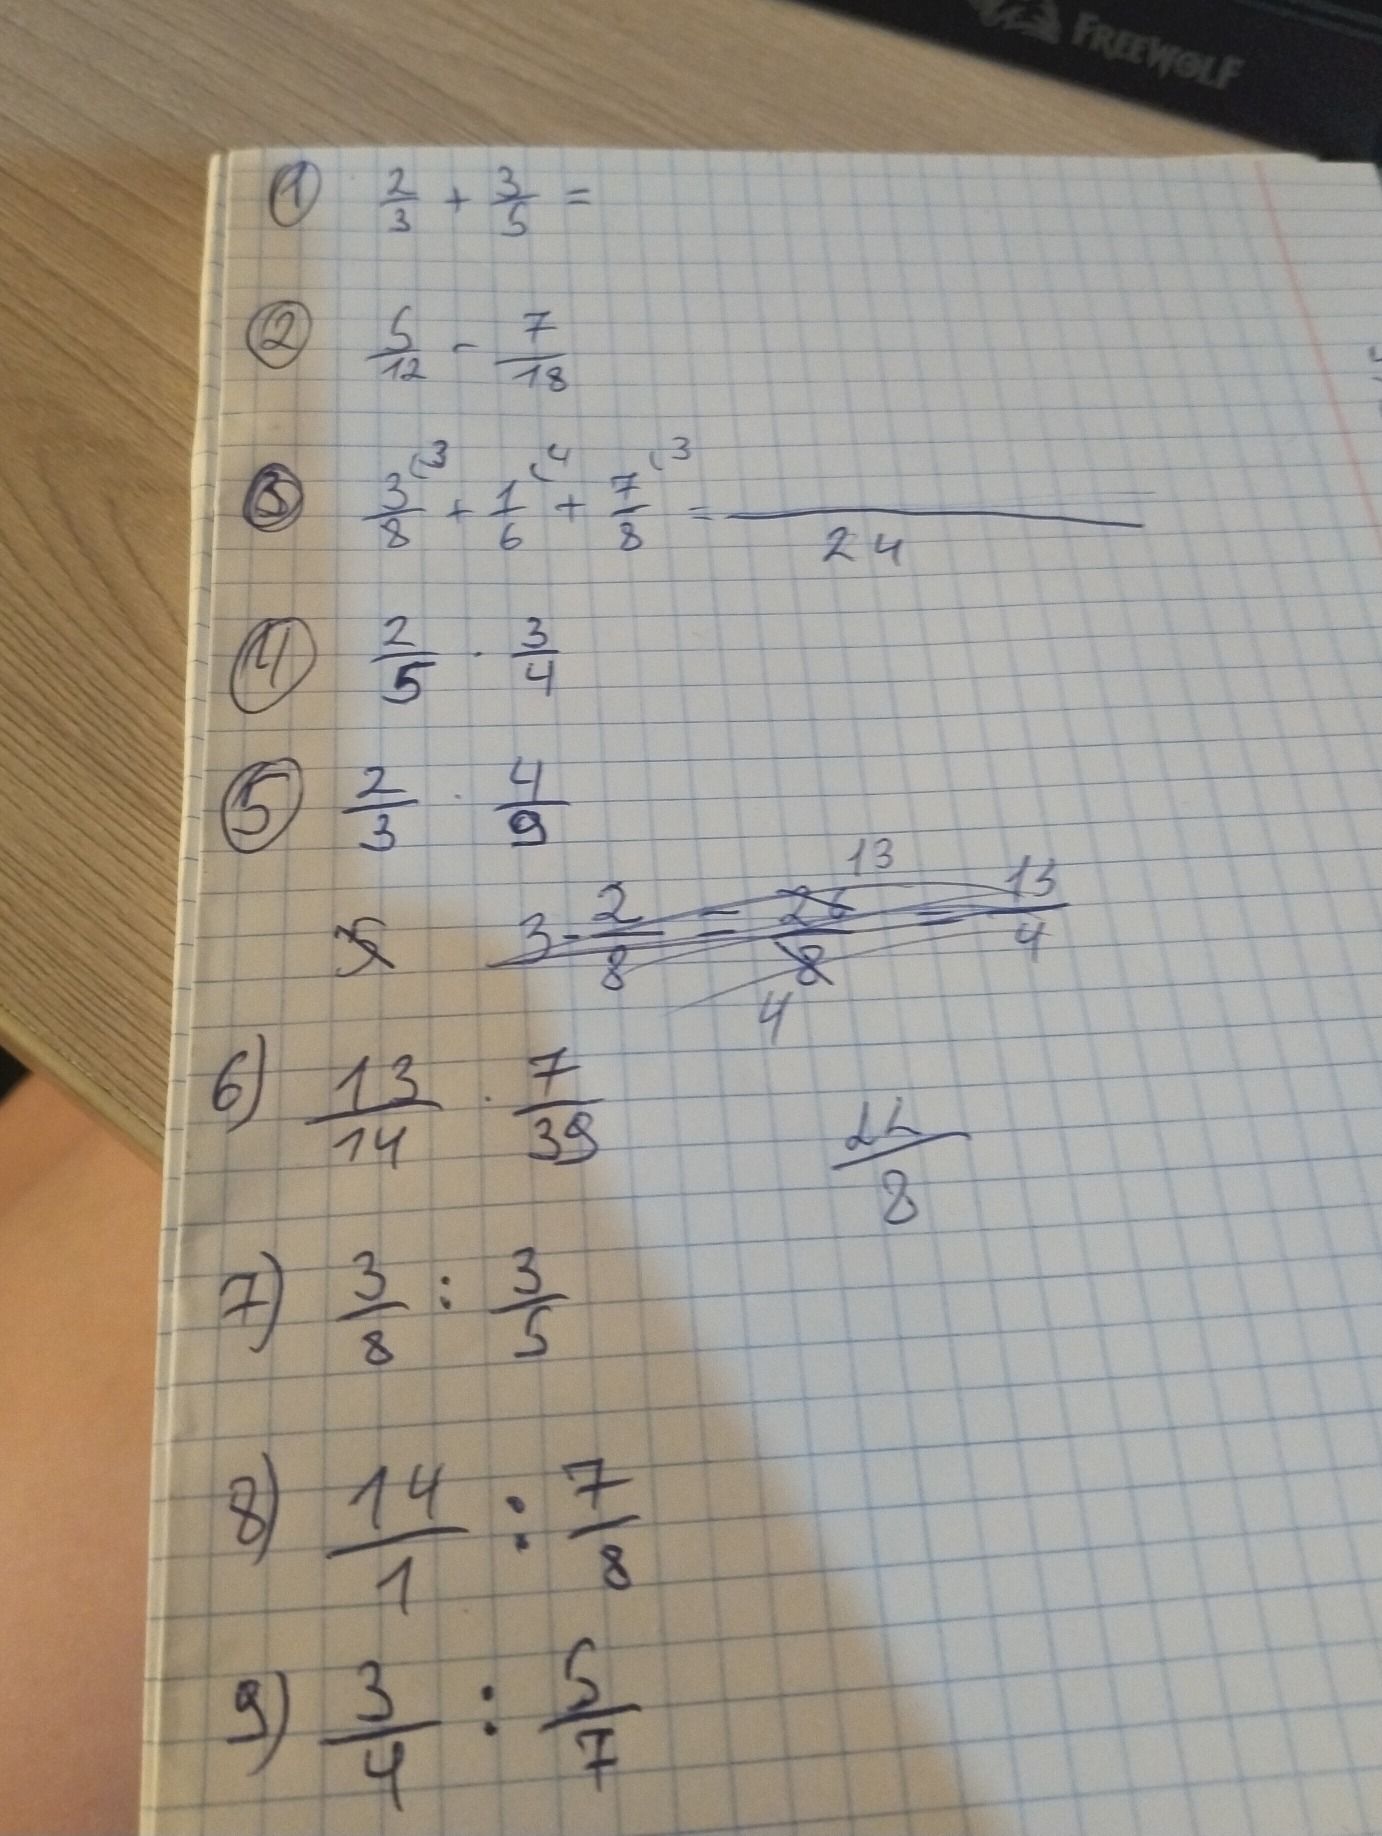 FREEWOLF
1 2/3 + 3/5 =
2 5/12 - 7/18
3 3/8 (3 + 1/6 (4 + 7/8 (3 = /24
4 2/5 · 3/4
5 2/3 · 4/9
3 - 2/8 = 26/8 13 4 = 13/4
6) 13/14 · 7/39
7) 3/8 : 3/5
8) 14/1 : 7/8
9) 3/4 : 5/7